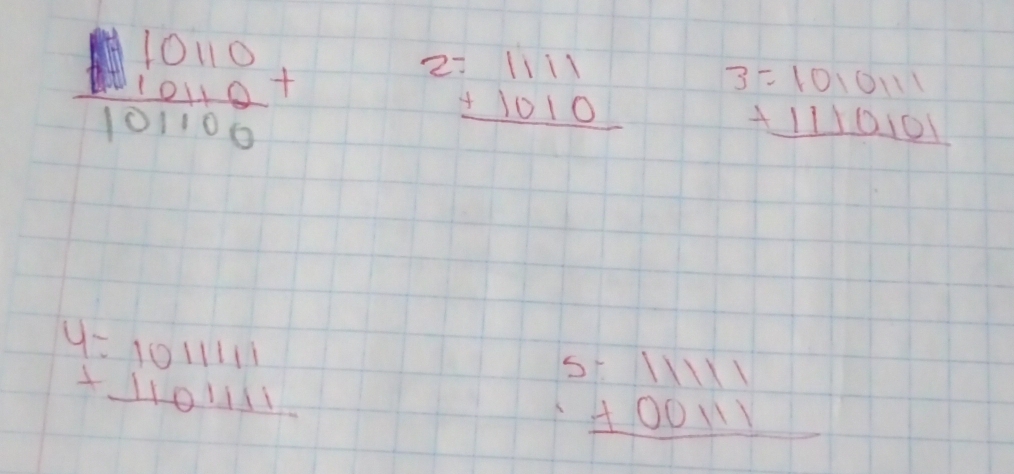 10110
10110 +
101100
2= 1111
+ 1010
3= 1010111
+ 1110101
4= 1011111
+ 1101111
5- 11111
+ 00111